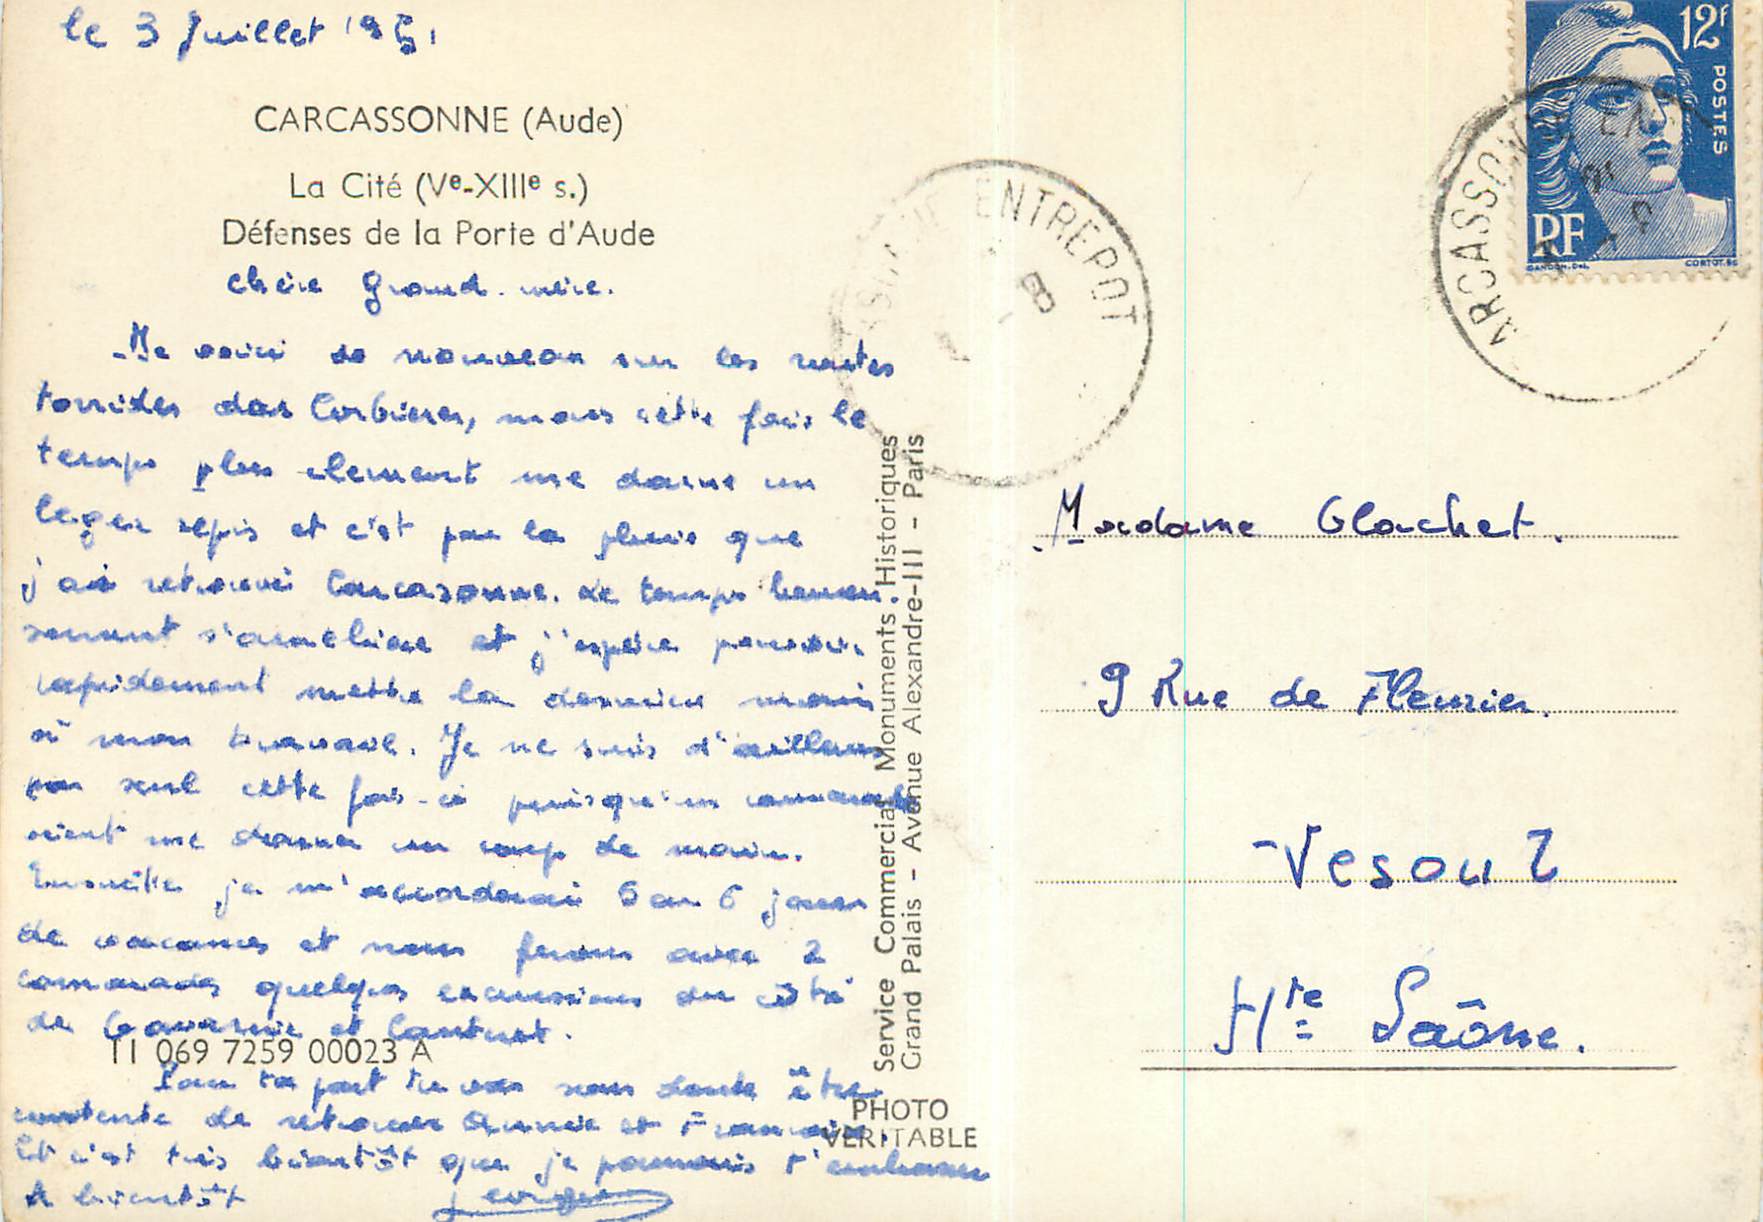 le 3 Juillet 1951
CARCASSONNE (Aude)
La Cité (Ve-XIIIe s.)
Défenses de la Porte d'Aude
Chère Grand-mère.
Me voici de nouveau sur les routes
torrides des Corbières, mais cette fois le
temps plus clement me donne un
leger repis et c'est par la pluie que
j'ai retrouvé Carcasonne. Le temps heureu-
sement s'améliore et j'espère pouvoir
rapidement mettre la dernière main
à mon travail. Je ne suis d'ailleurs
pas seul cette fois-ci puisqu'un camarade
vient me donner un coup de main.
Ensuite je m'accorderai 5 ou 6 jours
de vacances et nous ferons avec 2
camarades quelques excursions du côté
de Gavarnie et Cauteret.
11 069 7259 00023 A
Pour ta part tu vas sans doute être
contente de retrouver Annie et
Et c'est très bientôt que je pourrais t'embrasser
A bientôt
Georges
Service Commercial Monuments Historiques
Grand Palais - Avenue Alexandre-III - Paris
PHOTO
VERITABLE
ENTREPOT
12f
POSTES
RF
GANDON.Del.
CORTOT.SC
ARCASSONNE
Madame Glachet.
9 Rue de Fleurier.
Vesoul
Hte Saône.